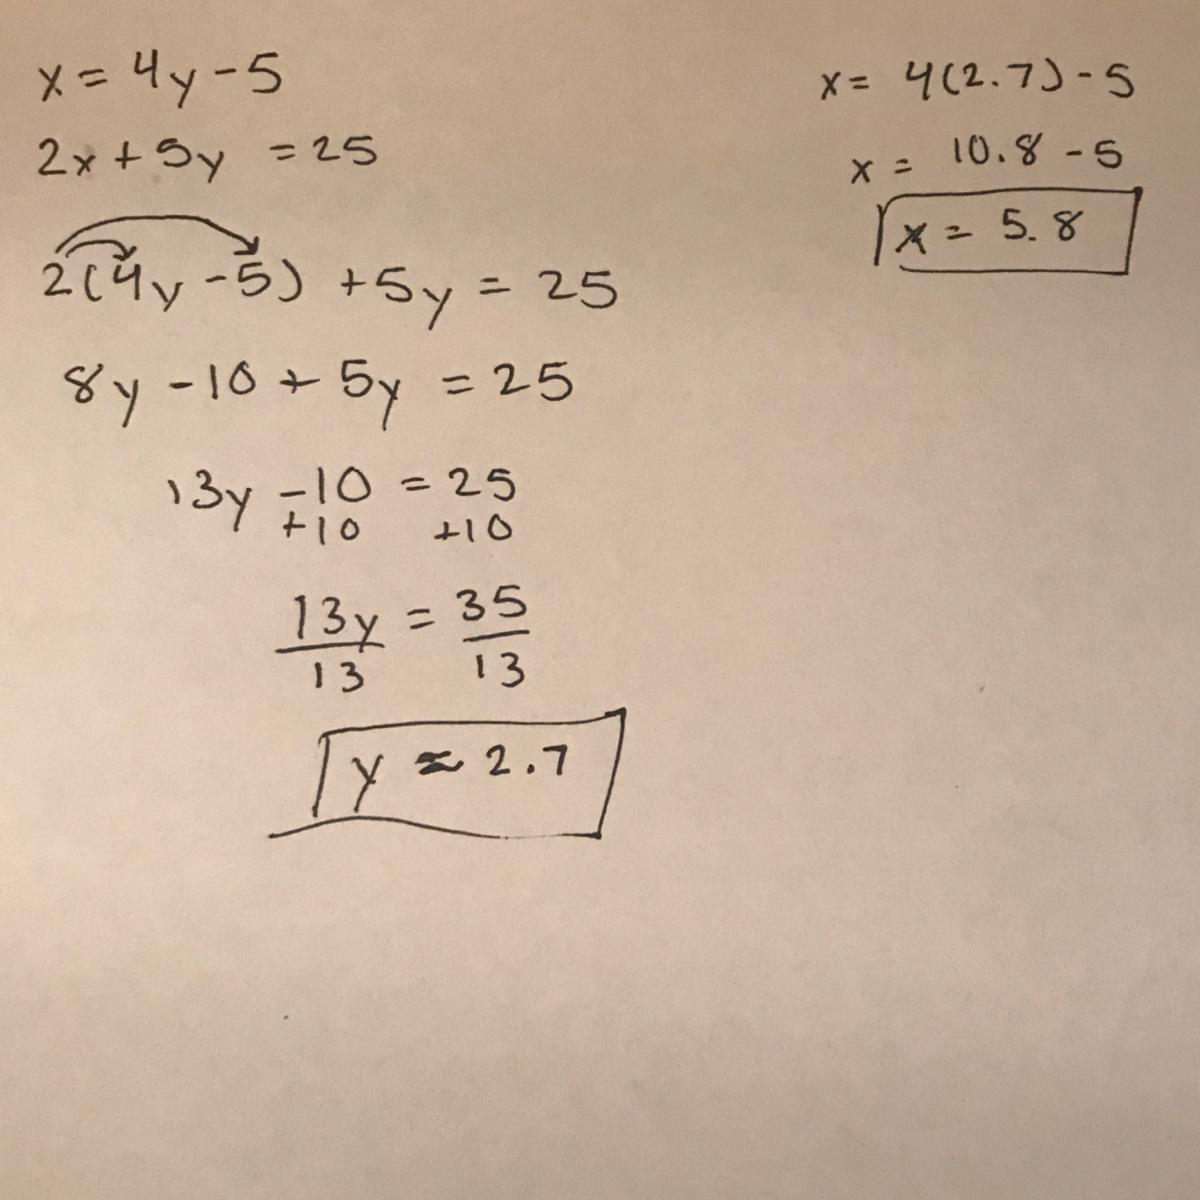 x = 4y - 5
2x + 5y = 25
2(4y - 5) + 5y = 25
8y - 10 + 5y = 25
13y - 10 = 25
+10 +10
13y = 35
13 13
y ≈ 2.7
x = 4(2.7) - 5
x = 10.8 - 5
x = 5.8